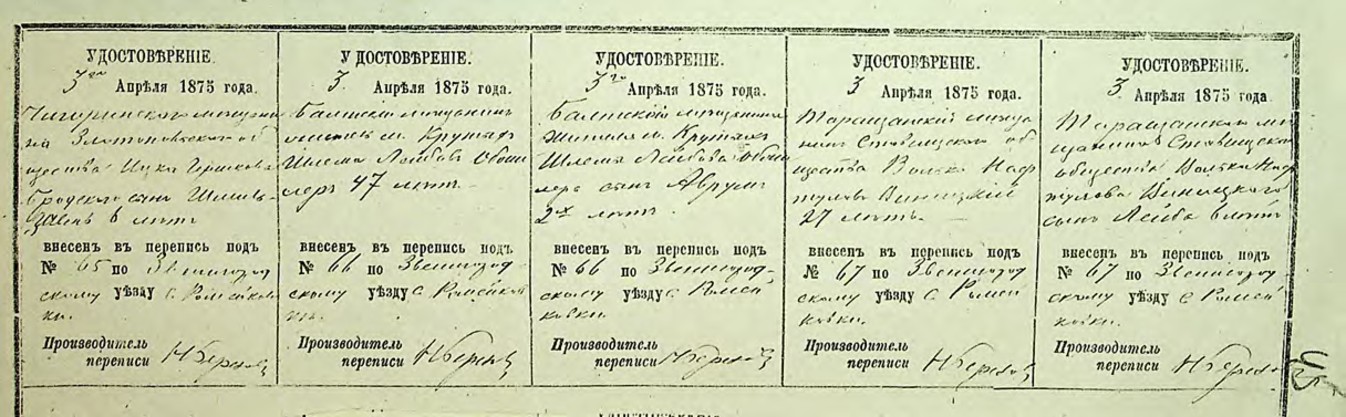 УДОСТОВѢРЕНІЕ.
3го Апрѣля 1875 года.
Чигиринскаго мещани
на Златопольскаго об
щества Ицка Гершкова
Бродскаго сынъ Шмиль-
6 летъ
внесенъ въ перепись подъ
№ 65 по Звенигород
скому уѣзду с. Ромейков
ки.
Производитель
переписи
УДОСТОВѢРЕНІЕ.
3. Апрѣля 1875 года.
Балтскій мещанинъ
м. Крутыхъ
Шлема Лейбовъ
47 летъ.
внесенъ въ перепись подъ
№ 66 по Звенигород-
скому уѣзду с. Ромейков
ки.
Производитель
переписи
УДОСТОВѢРЕНІЕ.
3го Апрѣля 1875 года.
Балтскій мещанинъ
м. Крутыхъ
Шлема Лейбова
сынъ Аврумъ
2хъ летъ.
внесенъ въ перепись подъ
№ 66 по Звенигород-
скому уѣзду с. Ромей
ковки.
Производитель
переписи
УДОСТОВѢРЕНІЕ.
3 Апрѣля 1875 года.
Таращанскій меща
нинъ Ставищскаго об
щества Волько Наф
туловъ Виницкій
27 летъ.
внесенъ въ перепись подъ
№ 67 по Звенигород
скому уѣзду с. Ромей
ковки.
Производитель
переписи
УДОСТОВѢРЕНІЕ.
3. Апрѣля 1875 года
Таращанскаго ме
щанина Ставищскаго
общества Волька Наф
тулова Виницкаго
сынъ Лейба 6 летъ
внесенъ въ перепись подъ
№ 67 по Звенигород-
скому уѣзду с. Ромей
ковки.
Производитель
переписи